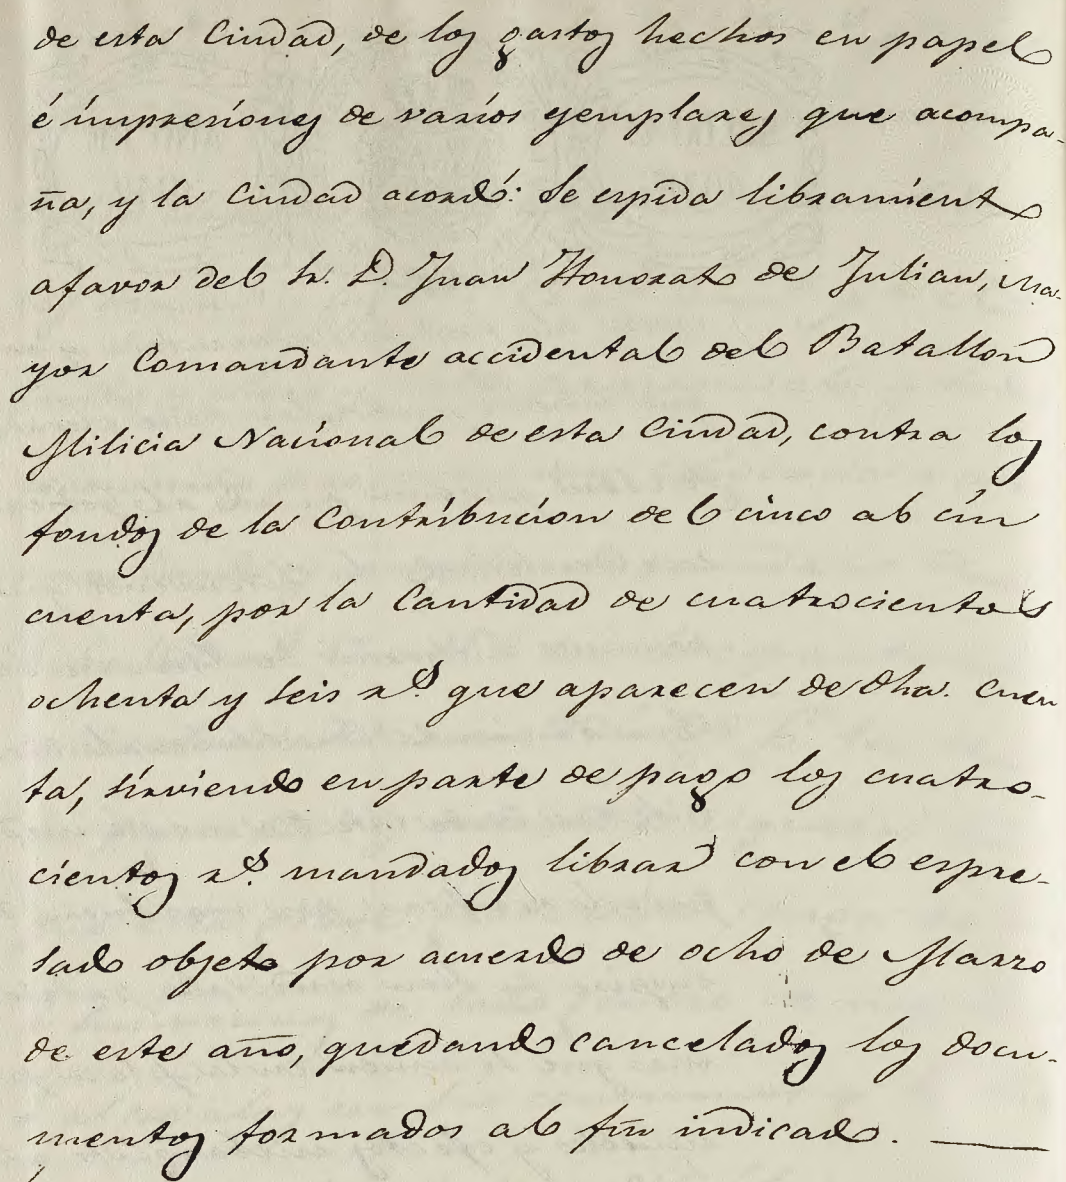 de esta Ciudad, de los gastos hechos en papel
é impresiones de varios ejemplares que acompa-
ña, y la Ciudad acordó: Se espida libramient<sup>o</sup>
a favor del Sr. D. Juan Honorato de Julian, Ma-
yor Comandante accidental del Batallon
Milicia Nacional de esta Ciudad, contra los
fondos de la Contribucion del cinco al cin
cuenta, por la Cantidad de cuatrocientos
ochenta y seis r.s que aparecen de dha. Cuen
ta, sirviendo en parte de pago los cuatro-
cientos r.s mandados librar con el espre-
sado objeto por acuerdo de ocho de Marzo
de este año, quedando cancelados los docu-
mentos formados al fin indicado.